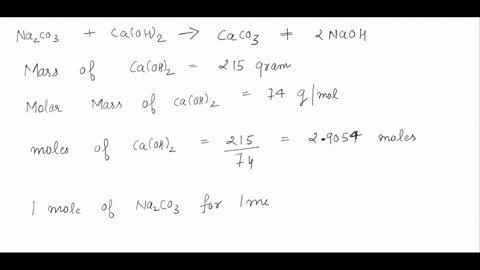 Na2CO3 + Ca(OH)2 → CaCO3 + 2 NaOH
Mass of Ca(OH)2 = 215 gram
Molar Mass of Ca(OH)2 = 74 g/mol
moles of Ca(OH)2 = 215/74 = 2.9054 moles
1 mole of Na2CO3 for 1 mo